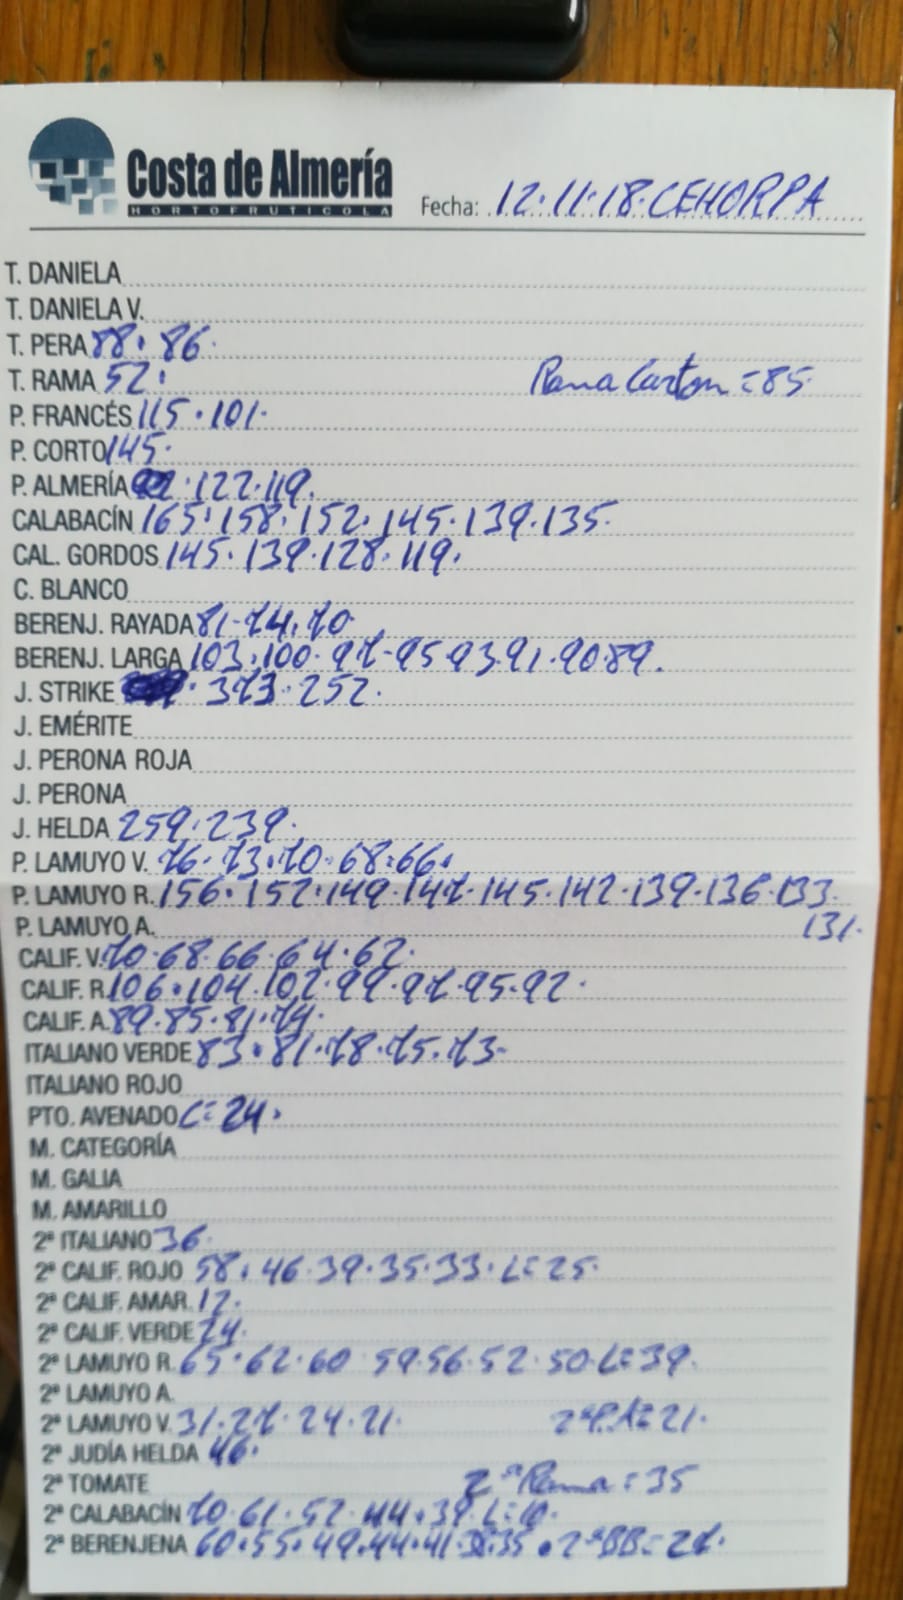 Costa de Almería
HORTOFRUTICOLA
Fecha: 12.11.18.CEHORPA
T. DANIELA
T. DANIELA V.
T. PERA 88. 86.
T. RAMA 52. Rama Carton = 85.
P. FRANCÉS 115.101.
P. CORTO 145.
P. ALMERÍA .122.119.
CALABACÍN 165.158.152.145.139.135.
CAL. GORDOS 145.139.128.119.
C. BLANCO
BERENJ. RAYADA 81.74.70.
BERENJ. LARGA 103.100.97.95.93.91.90.89.
J. STRIKE .373.252.
J. EMÉRITE
J. PERONA ROJA
J. PERONA
J. HELDA 259.239.
P. LAMUYO V. 76.73.70.68.66.
P. LAMUYO R. 156.152.149.147.145.142.139.136.133.
P. LAMUYO A. 131.
CALIF. V. 70.68.66.64.62.
CALIF. R. 106.104.102.99.97.95.92.
CALIF. A. 89.85.81.74.
ITALIANO VERDE 83.81.78.75.73.
ITALIANO ROJO
PTO. AVENADO C=24.
M. CATEGORÍA
M. GALIA
M. AMARILLO
2ª ITALIANO 36.
2ª CALIF. ROJO 58.46.39.35.33.L=25.
2ª CALIF. AMAR. 12.
2ª CALIF. VERDE 24.
2ª LAMUYO R. 65.62.60 59.56.52.50.L=39.
2ª LAMUYO A.
2ª LAMUYO V. 31.27.24.21. 2ªP.A=21.
2ª JUDÍA HELDA 46.
2ª TOMATE 2ª Rama = 35
2ª CALABACÍN 70.61.52.44.39.L=10.
2ª BERENJENA 60.55.49.44.41.38.35.2ªBB=27.